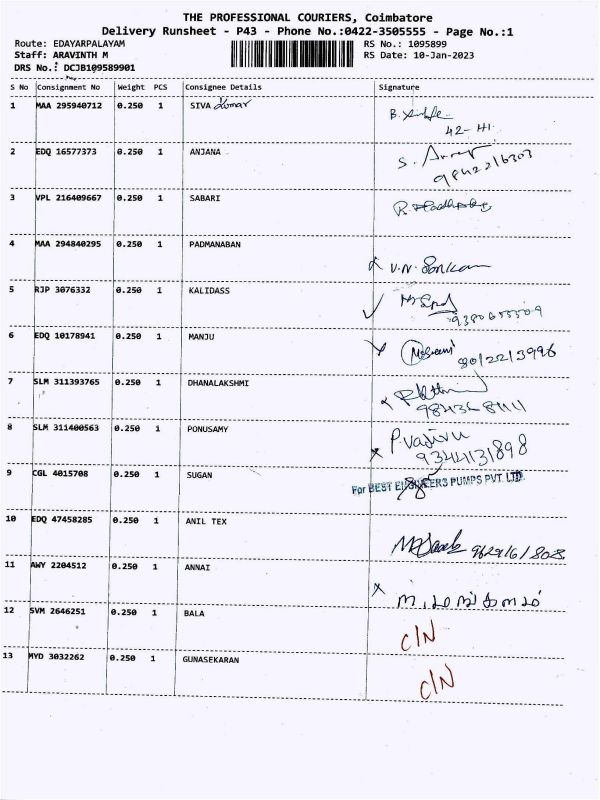 THE PROFESSIONAL COURIERS, Coimbatore
Delivery Runsheet - P43 - Phone No.:0422-3505555 - Page No.:1
Route: EDAYARPALAYAM RS No.: 1095899
Staff: ARAVINTH M RS Date: 10-Jan-2023
DRS No.: DCJB109589901
S No Consignment No Weight PCS Consignee Details Signature
1 MAA 295940712 0.250 1 SIVA Kumar B.
42- H1
2 EDQ 16577373 0.250 1 ANJANA S.
9842216303
3 VPL 216409667 0.250 1 SABARI R.
4 MAA 294840295 0.250 1 PADMANABAN V.N.
5 RJP 3076332 0.250 1 KALIDASS
6 EDQ 10178941 0.250 1 MANJU 8012213996
7 SLM 311393765 0.250 1 DHANALAKSHMI
8 SLM 311400563 0.250 1 PONUSAMY P.
9344131898
9 CGL 4015708 0.250 1 SUGAN For BEST ENGINEERS PUMPS PVT. LTD.
10 EDQ 47458285 0.250 1 ANIL TEX
11 AWY 2204512 0.250 1 ANNAI
12 SVM 2646251 0.250 1 BALA C/N
13 MYD 3032262 0.250 1 GUNASEKARAN C/N